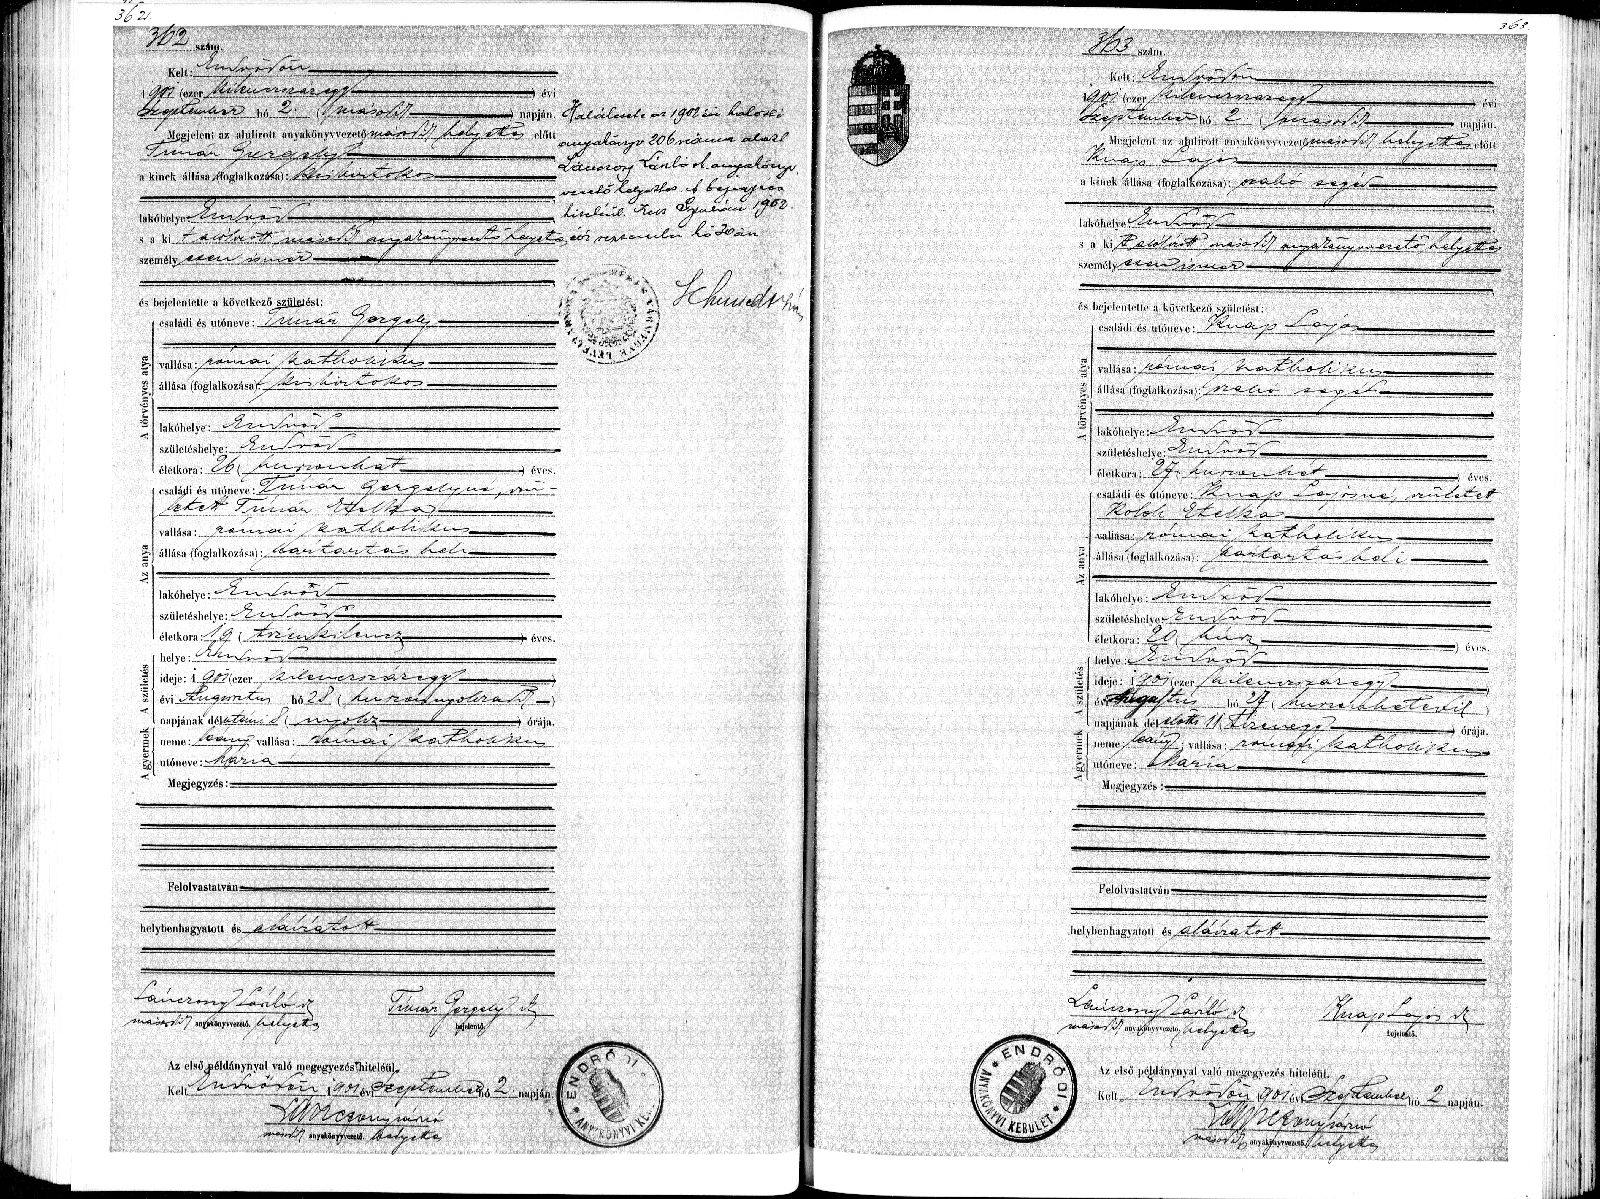 362
362 szám.
Kelt: Endrődön
1901 (ezer kilencszázegy) évi
szeptember hó 2 (második) napján.
Megjelent az alulirott anyakönyvvezető második helyettes előtt
Timár Gergely
a kinek állása (foglalkozása): kisbirtokos
lakóhelye Endrőd
s a ki t alólirott második anyakönyvvezető helyettes
személyesen ismer
és bejelentette a következő születést:
A törvényes atya
családi és utóneve: Timár Gergely
vallása: római katholikus
állása (foglalkozása): kisbirtokos
lakóhelye: Endrőd
születéshelye: Endrőd
életkora: 26 (huszonhat) éves.
Az anya
családi és utóneve: Timár Gergelyné, szü-
letett Timár Etelka
vallása: római katholikus
állása (foglalkozása): háztartásbeli
lakóhelye: Endrőd
születéshelye: Endrőd
életkora: 19 (tizenkilencz) éves.
A születés
helye: Endrőd
ideje: 1901 (ezer kilencszázegy)
évi Augusztus hó 28 (huszonnyolczadik)
napjának délutáni 8 (nyolcz) órája.
A gyermek
neme: leány vallása: római katholikus
utóneve: Mária
Megjegyzés:
Felolvastatván
helybenhagyatott és aláiratott
Lánczonyi László sk
második anyakönyvvezető. helyettes
Timár Gergely sk
bejelentő.
Az első példánynyal való megegyezés hiteléül.
Kelt Endrődön 1901 évi szeptember hó 2 napján.
Lánczonyi László
második anyakönyvvezető. helyettes
ENDRŐDI
ANYAKÖNYVI
az 1902 évi halotti
anyakönyv 206 száma alatt
László sk. anyakönyv-
vezető helyettes
hiteléül. 1902.
évi hó 30 án
363.
363 szám.
Kelt: Endrődön
1901 (ezer kilencszázegy) évi
Szeptember hó 2 (második) napján.
Megjelent az alulirott anyakönyvvezető második helyettes előtt
Knap Lajos
a kinek állása (foglalkozása): szabó segéd
lakóhelye: Endrőd
s a ki t alólirott második anyakönyvvezető helyettes
személyesen ismer
és bejelentette a következő születést:
A törvényes atya
családi és utóneve: Knap Lajos
vallása: római katholikus
állása (foglalkozása): szabó segéd
lakóhelye: Endrőd
születéshelye: Endrőd
életkora: 27 (huszonhét) éves.
Az anya
családi és utóneve: Knap Lajosné, született
Etelka
vallása: római katholikus
állása (foglalkozása): háztartásbeli
lakóhelye: Endrőd
születéshelye: Endrőd
életkora: 20 (húsz) éves.
A születés
helye: Endrőd
ideje: 1901 (ezer kilencszázegy)
évi Augusztus hó 27 (huszonhetedik)
napjának délelőtti 11 (tizenegy) órája.
A gyermek
neme: leány; vallása: római katholikus
utóneve: Mária
Megjegyzés:
Felolvastatván
helybenhagyatott és aláiratott
Lánczonyi László sk
második anyakönyvvezető, helyettes
Knap Lajos sk
bejelentő.
Az első példánynyal való megegyezés hiteléül.
Kelt Endrődön 1901 évi Szeptember hó 2 napján.
Lánczonyi László
második anyakönyvvezető. helyettes
ENDRŐDI
ANYAKÖNYVI KERÜLET